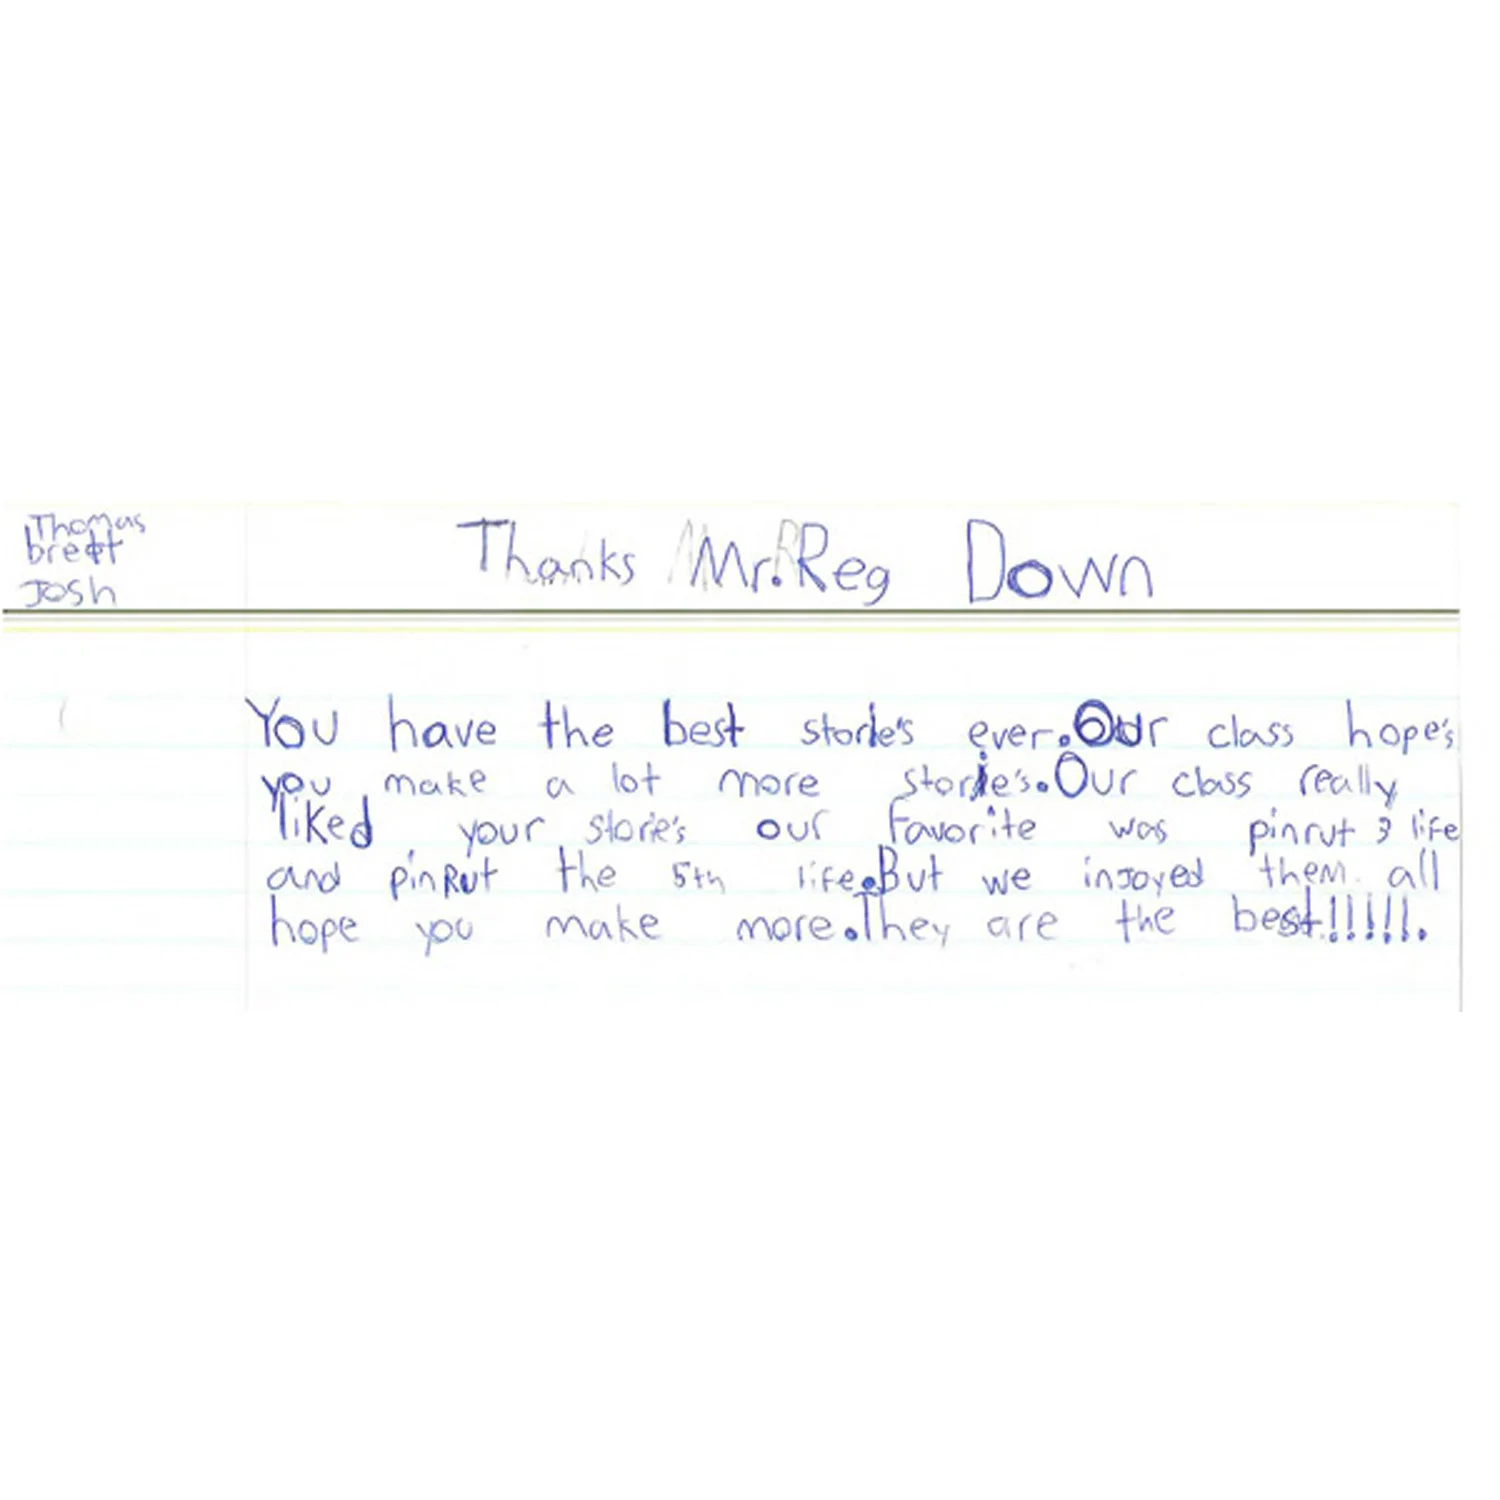 Thomas
brett
Josh
Thanks Mr. Reg Down
You have the best storie's ever. Our class hope's
you make a lot more storie's. Our class really
liked your storie's our favorite was pinrut 3 life
and pinRut the 5th life. But we injoyed them all
hope you make more. They are the best!!!!!.